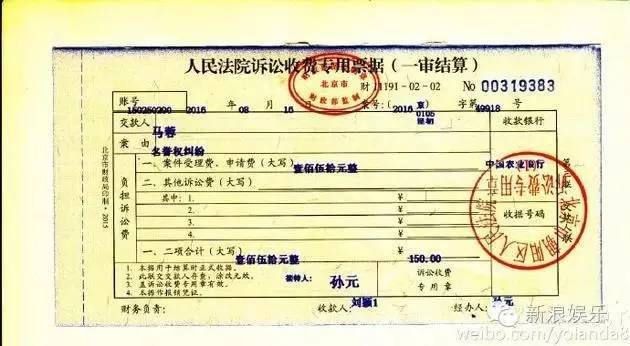 人民法院诉讼收费专用票据(一审结算)
北京市
财政部监制
财 11191-02-02 No 00319383
账号 150250200 2016 年 08 月 16 案号:( 2016 京0105 字第 49918 号
交款人 马蓉 收款银行
案由 名誉权纠纷
负担诉讼费
一、案件受理费、申请费(大写) 壹佰伍拾元整 中国农业银行
二、其他诉讼费(大写) ¥
其中:1. ¥
2. ¥
3. ¥
收据号码
一、二项合计(大写) 壹佰伍拾元整 ¥ 150.00
1.本据用于结算时正式收据。
2.此联交交款人存查,涂改无效。
3.盖诉讼收费专用章有效。
4.本据作报销凭证。
接待人: 孙元
诉讼收费
专用章
财务负责: 收款人: 刘颖1 经办人: 孙元
北京市财政局印制·2015
诉讼费专用章
新浪娱乐
weibo.com/yolanda8